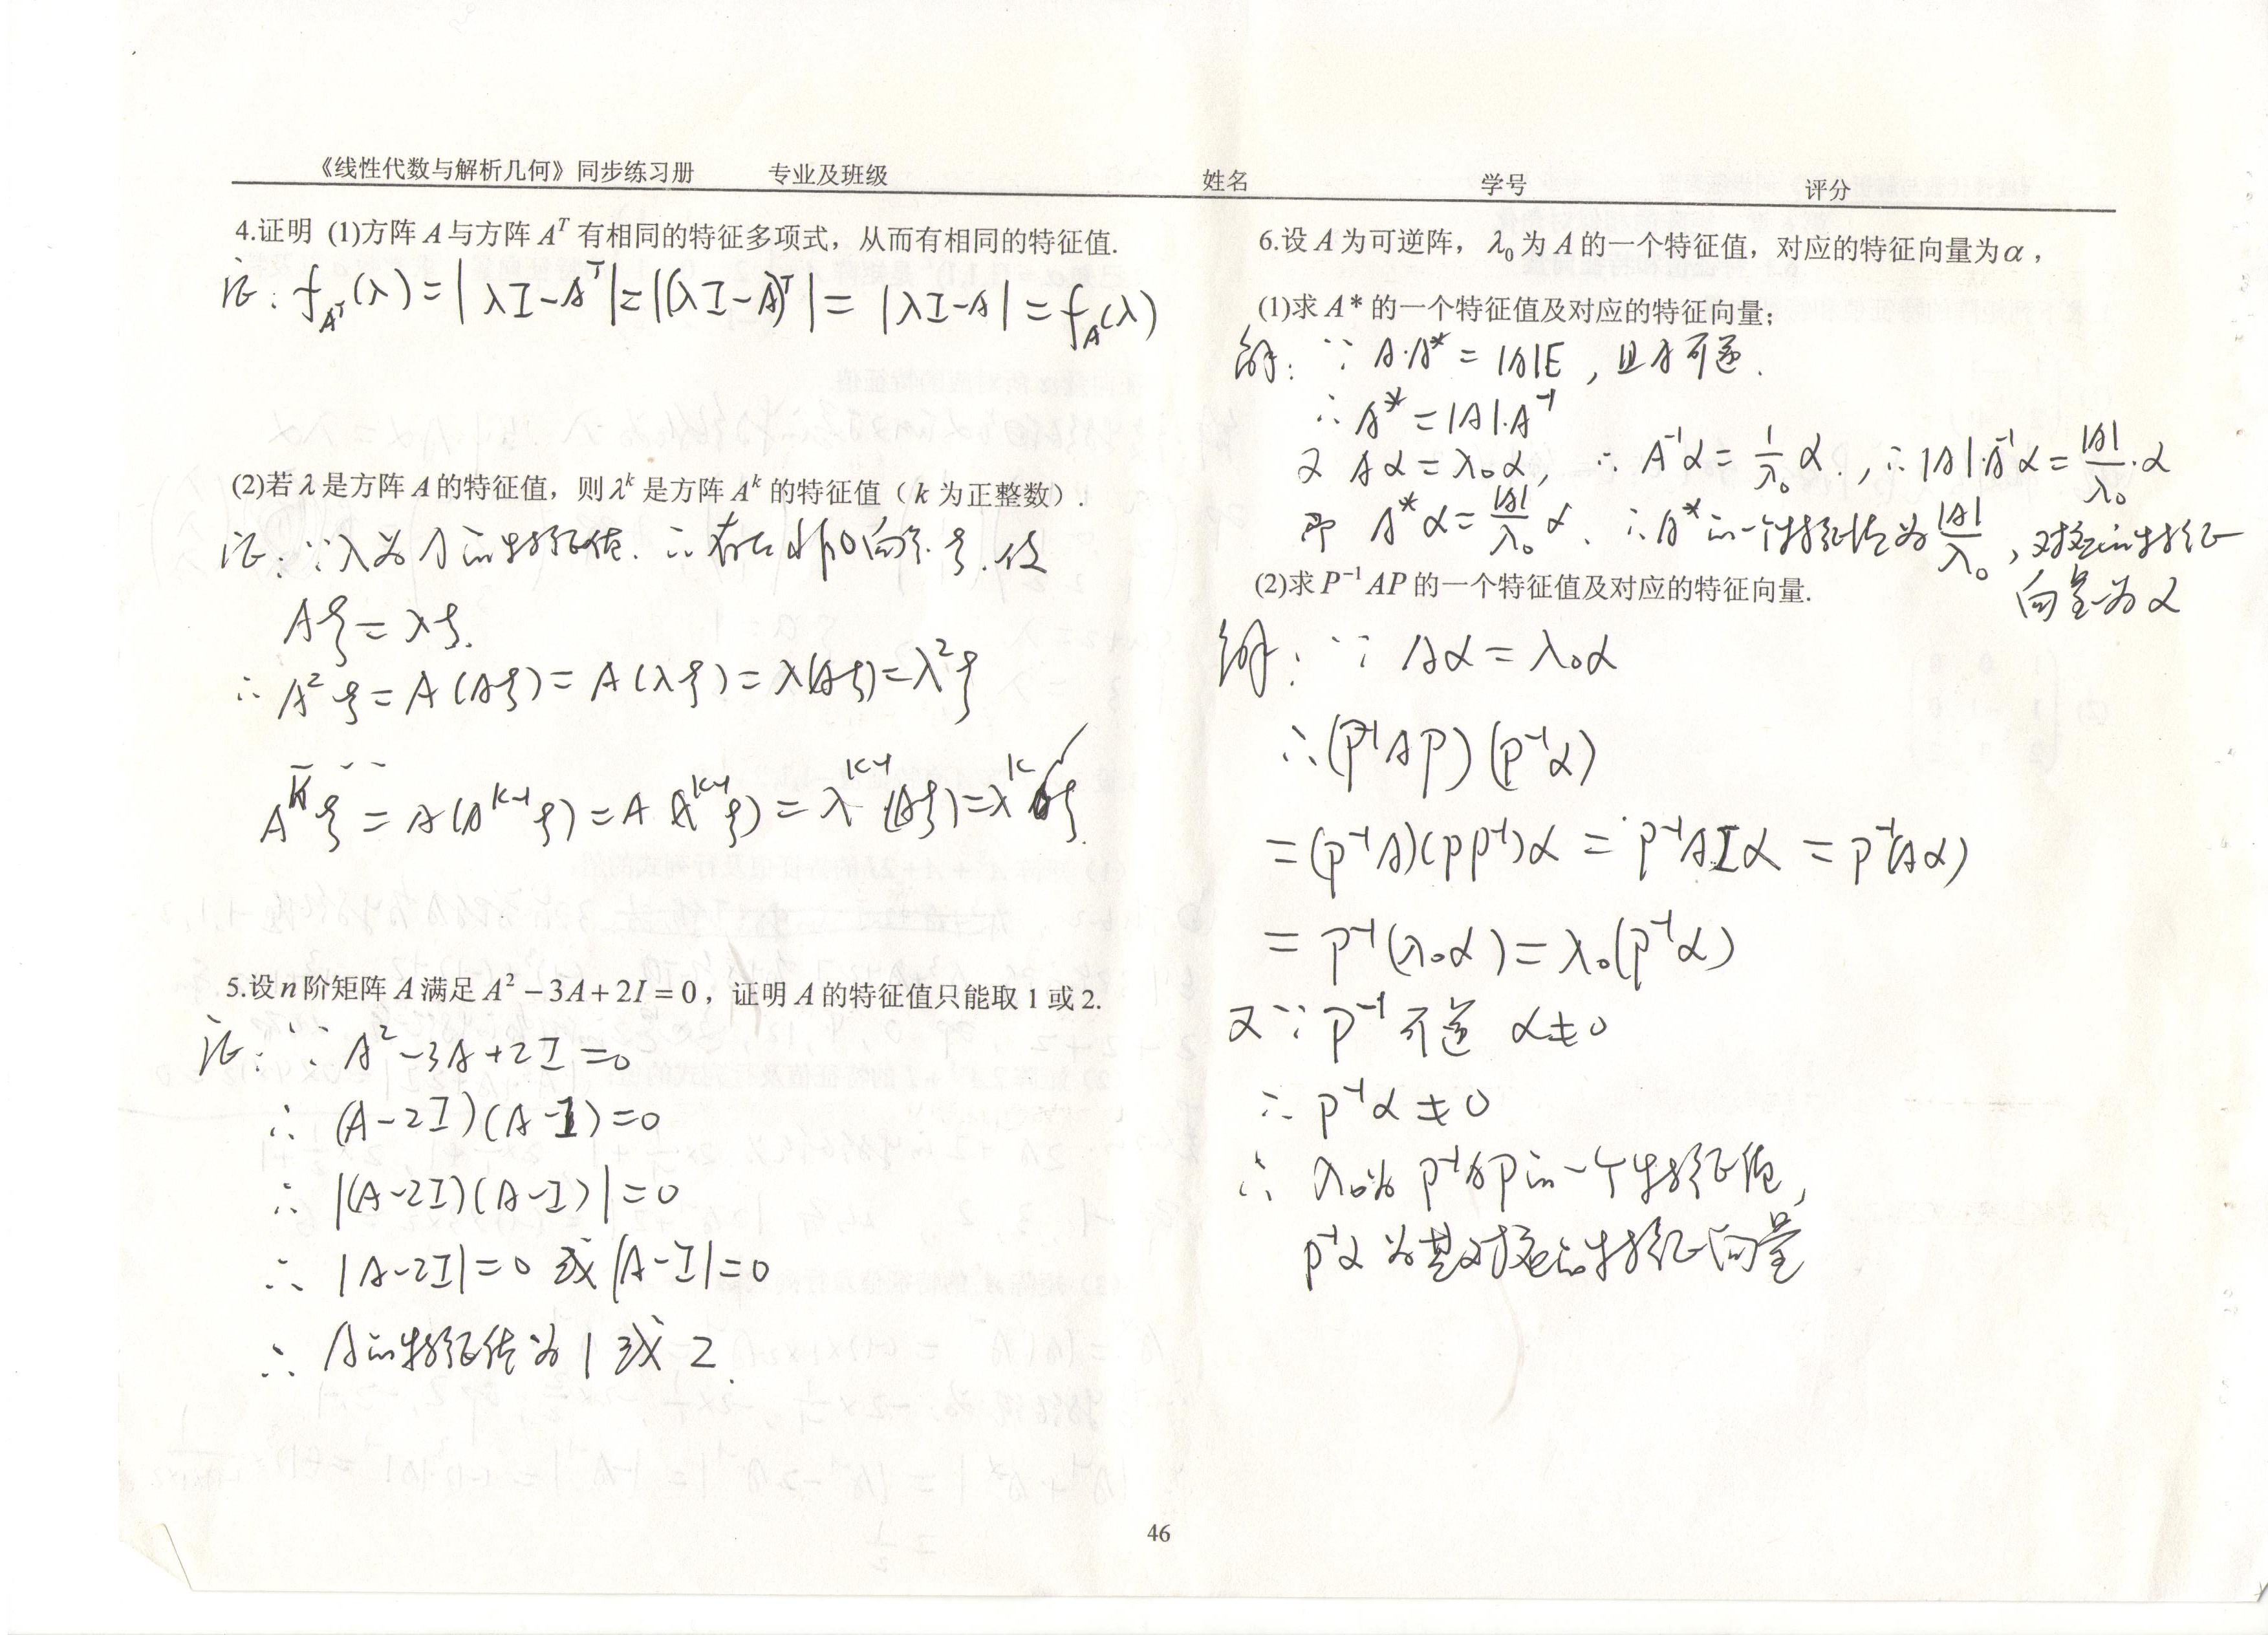 《线性代数与解析几何》同步练习册 专业及班级 姓名 学号 评分
4.证明 (1)方阵 A 与方阵 A^T 有相同的特征多项式，从而有相同的特征值.
证：f_{A^T}(λ)=|λI-A^T|=|(λI-A)^T|=|λI-A|=f_A(λ)
(2)若 λ 是方阵 A 的特征值，则 λ^k 是方阵 A^k 的特征值（k 为正整数）.
证：∵λ为A的特征值.∴存在非0向量ξ.使
Aξ=λξ.
∴A²ξ=A(Aξ)=A(λξ)=λ(Aξ)=λ²ξ
A^kξ=A(A^{k-1}ξ)=A(λ^{k-1}ξ)=λ^{k-1}(Aξ)=λ^kξ.
5.设 n 阶矩阵 A 满足 A²-3A+2I=0，证明 A 的特征值只能取 1 或 2.
证：∵A²-3A+2I=0
∴(A-2I)(A-I)=0
∴|(A-2I)(A-I)|=0
∴|A-2I|=0或|A-I|=0
∴A的特征值为1或2.
6.设 A 为可逆阵，λ₀ 为 A 的一个特征值，对应的特征向量为 α，
(1)求 A* 的一个特征值及对应的特征向量；
解：∵A·A*=|A|E，且A可逆.
∴A*=|A|·A⁻¹
又 Aα=λ₀α，∴A⁻¹α=1/λ₀ α.，∴|A|·A⁻¹α=|A|/λ₀·α
即 A*α=|A|/λ₀ α.∴A*的一个特征值为|A|/λ₀，对应的特征
向量为α
(2)求 P⁻¹AP 的一个特征值及对应的特征向量.
解：∵Aα=λ₀α
∴(P⁻¹AP)(P⁻¹α)
=(P⁻¹A)(PP⁻¹)α=P⁻¹AIα=P⁻¹(Aα)
=P⁻¹(λ₀α)=λ₀(P⁻¹α)
又∵P⁻¹可逆 α≠0
∴P⁻¹α≠0
∴λ₀为P⁻¹AP的一个特征值，
P⁻¹α为其对应的特征向量
46